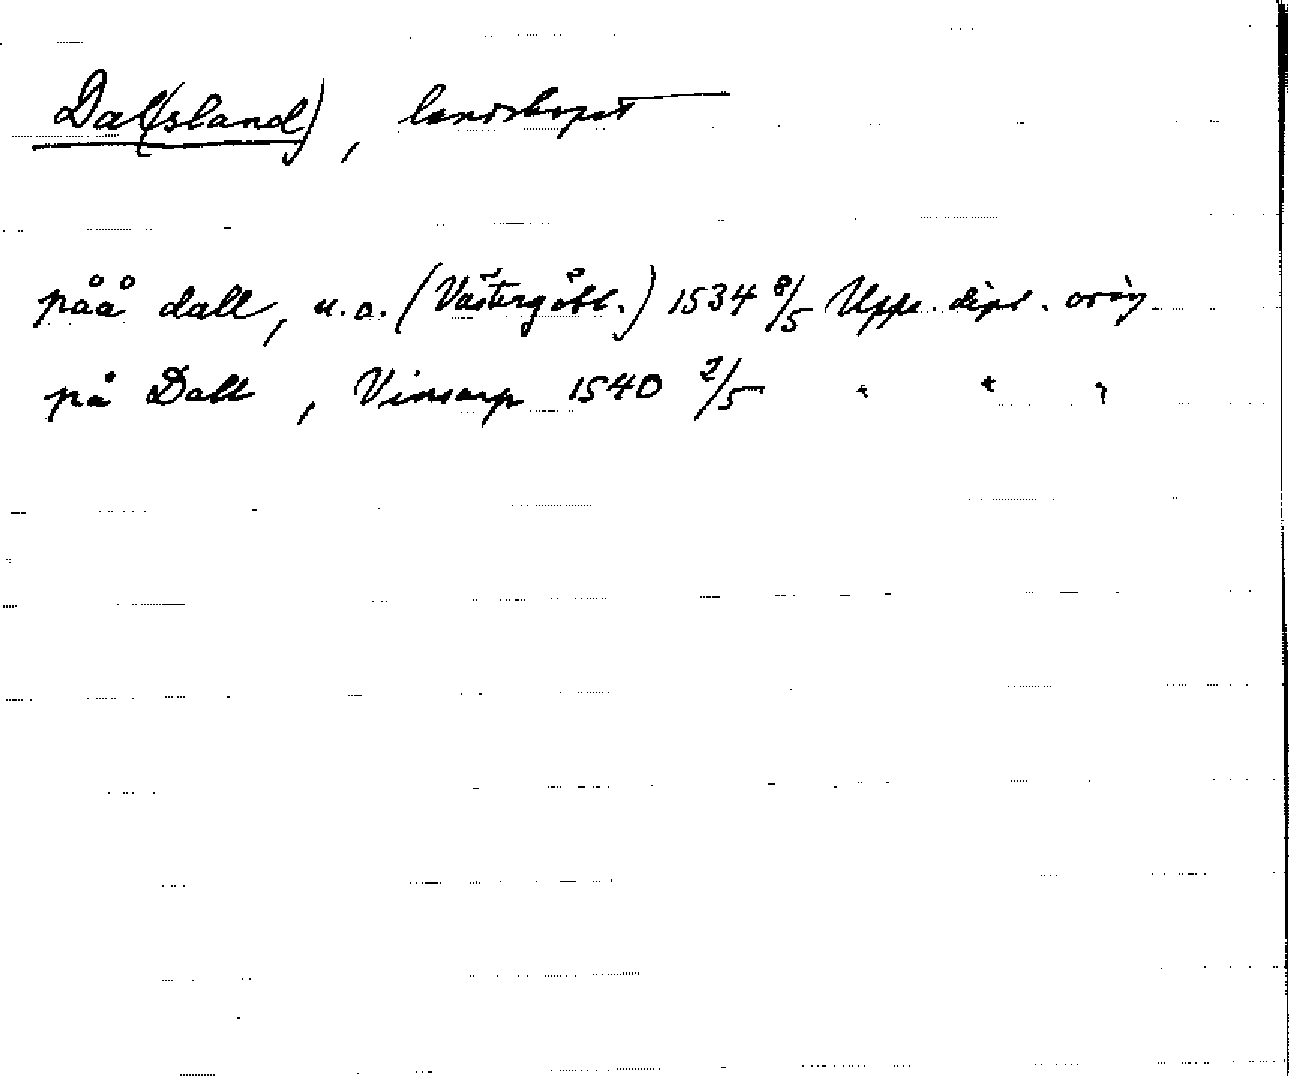 Dal(sland), landskapet
påå dall, u.o. (Västergötl.) 1534 8/5 Upps. dipl. orig
på Dall, Vinsarp 1540 2/5 " " "